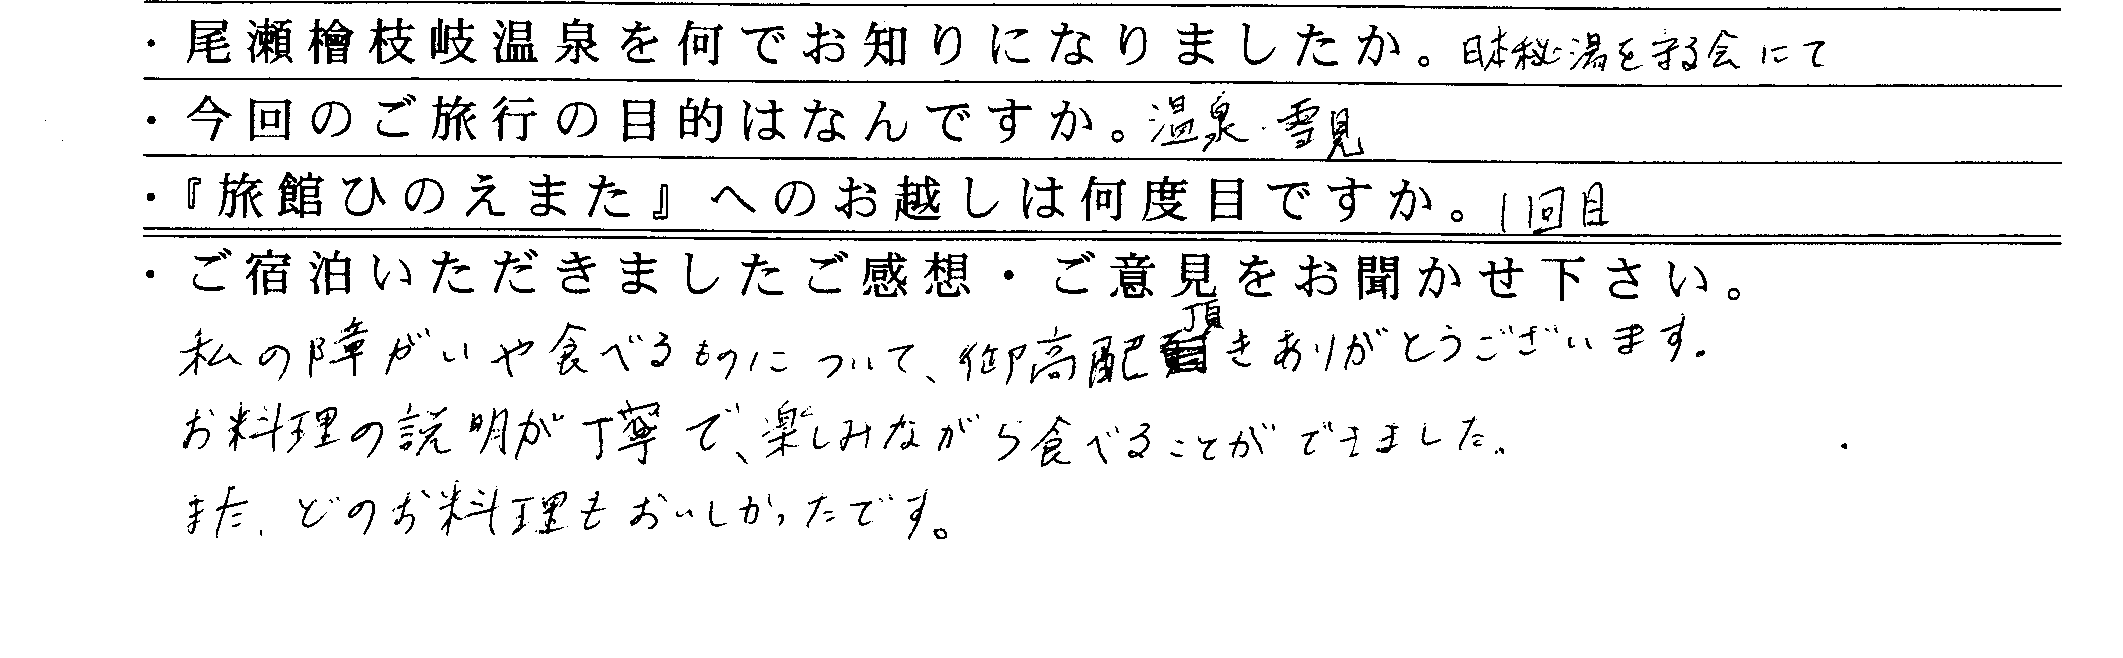 ・尾瀬檜枝岐温泉を何でお知りになりましたか。日本秘湯を守る会にて
・今回のご旅行の目的はなんですか。温泉・雪見
・『旅館ひのえまた』へのお越しは何度目ですか。1回目
・ご宿泊いただきましたご感想・ご意見をお聞かせ下さい。
私の障がいや食べるものについて、御高配頂きありがとうございます。
お料理の説明が丁寧で、楽しみながら食べることができました。
また、どのお料理もおいしかったです。